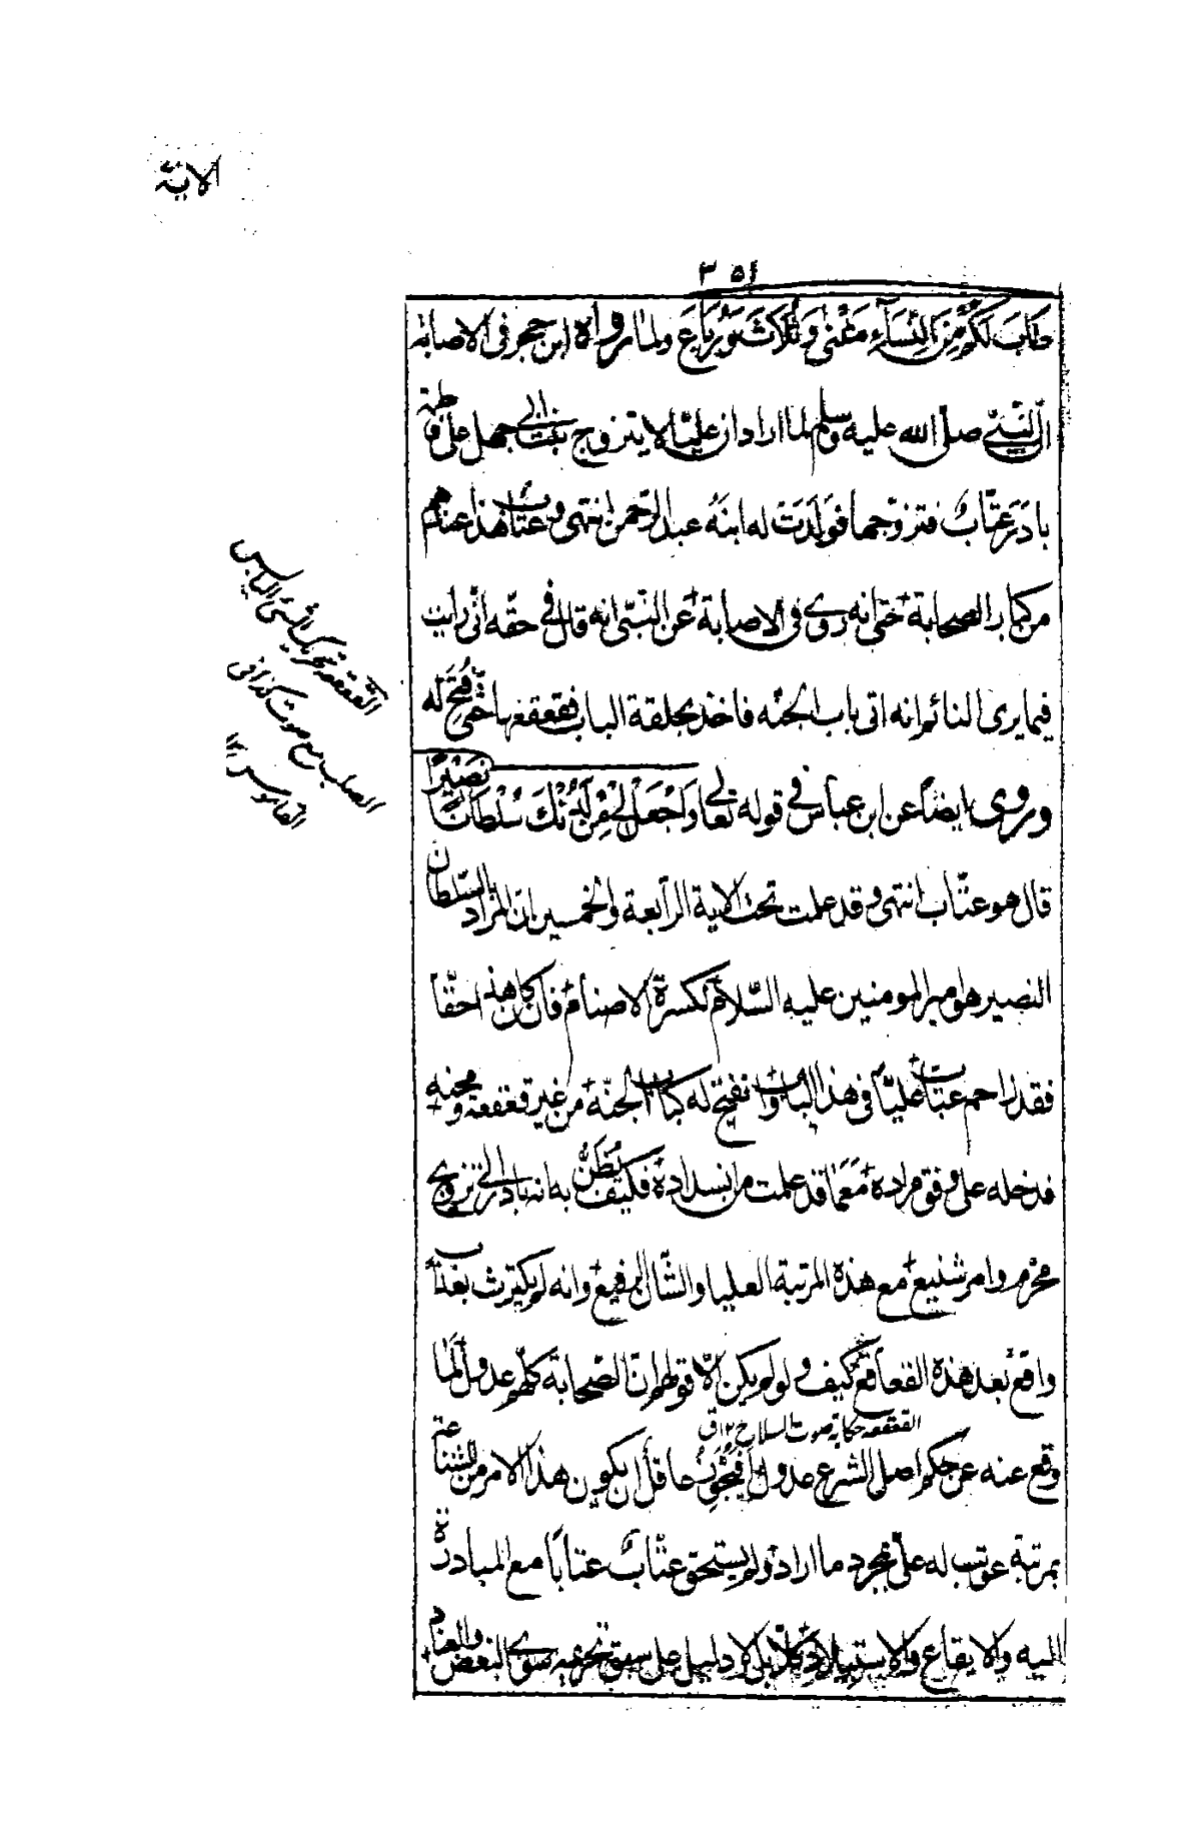 الاية
٣٥١
طَابَ لَكُمْ مِنَ النِّسَآءِ مَثْنٰى وَثُلَاثَ وَرُبَاعَ ولما رواه ابن حجر فى الاصابة
ان النبىّ صلى الله عليه وسلم لما اراد ان عليّا لا يتزوج بنت ابى جهل على فاطمة
بادَرَ عتّابٌ فتزوّجها فوَلَدَت له ابنَهُ عبد الرّحمن انتهى وعتّاب هذا عندهم
من كبار الصحابة حتى انه روى فى الاصابة عن النبّى انه قال فى حقّه انّى رايت
فيما يرى النائم انه اتى باب الجنّه فاخذ بحلقة الباب فقعقعها حتّى فُتِحَ له
وروى ايضًا عن ابن عباس فى قوله تعالى وَاجْعَلْ لِّىْ مِنْ لَّدُنْكَ سُلْطَانًا نَّصِيْرًا
قال هو عتّاب انتهى وقد علمت تحت الاية الرابعة والخمسين ان المراد السّلطان
النصير هو امير المومنين عليه السّلام لكسرة الاصنام فان كان هذا حقّا
فقد زاحم عتاب عليّا فى هذا الباب وانفتح له كباب الجنّة من غير قعقعة ومحنة
فدخله على وفق مراده مَعَمَا قد علمت من انسداده فكيف يُظَنُّ به انه بادر الى تزويج
محرّم وامر شنيع مع هذه المرتبة العليا والشّان الرفيع وانه لم يكترث بعذاب
واقع بعد هذه القعاقع كيف ولو لم يكن الّا قولهم انّ الصّحابة كلّهم عدول لما
القعقعة حكاية صوت السلاح ١٢ ق
وقع عنه عن حكم اصل الشرع عدول افيجوّز عاقل ان يكون هذا الامر من الشناعة
بمرتبة عوتب له علىّ بمجرد ما اراد ولم يستحق عتّابٌ عتابًا مع المبادرة
اليه والايقاع والاستيلاد كلّا بل لا دليل على سبق تحريمه سوى البغض والعناد
القعقعة تحريك الشئ اليابس
الصلب مع صوت كذا فى
القاموس ١٢